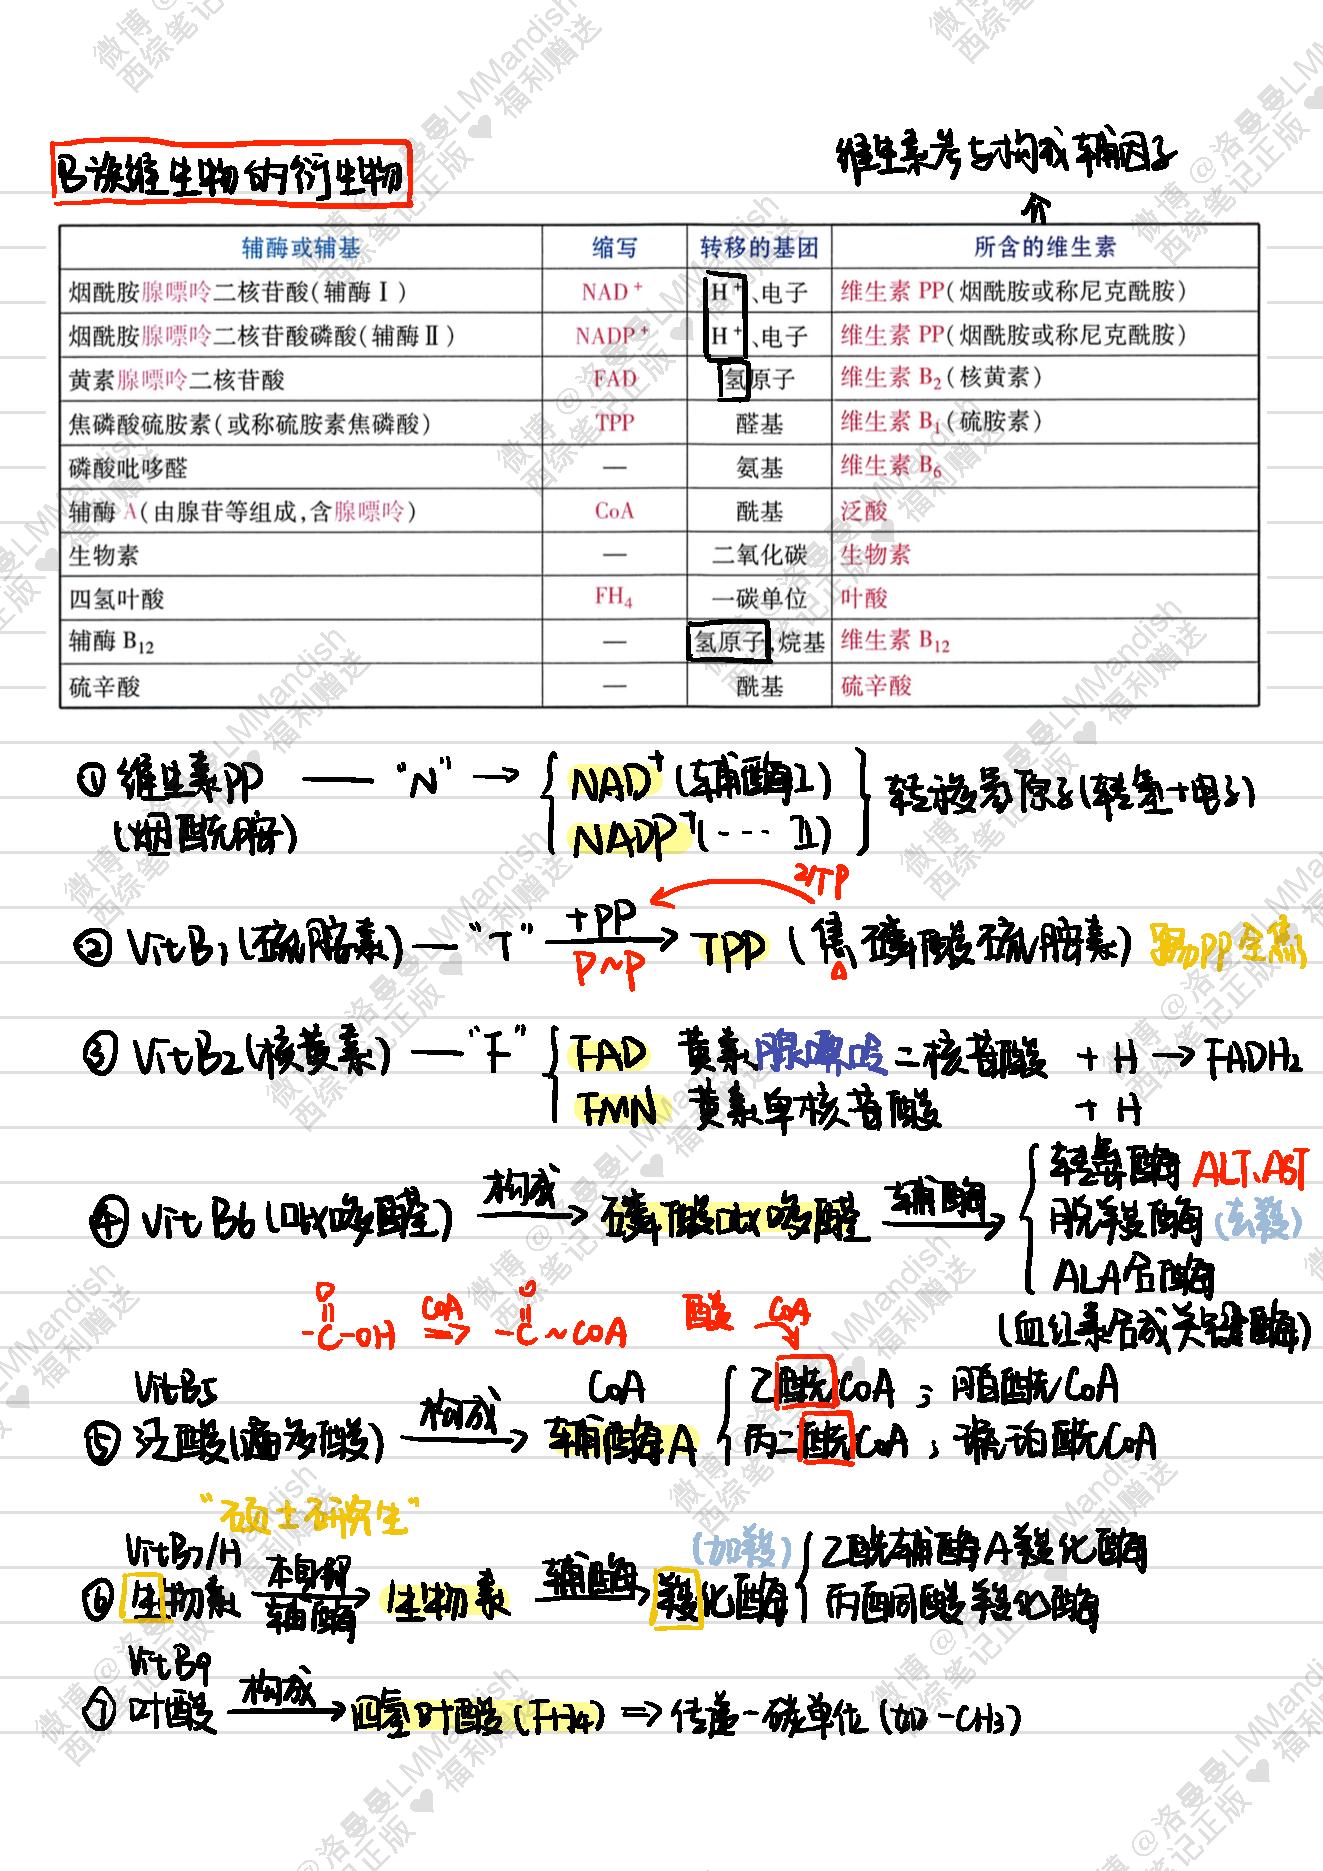 B族维生物的衍生物
维生素参与构成辅因子
辅酶或辅基 缩写 转移的基团 所含的维生素
烟酰胺腺嘌呤二核苷酸(辅酶Ⅰ) NAD+ H+、电子 维生素 PP(烟酰胺或称尼克酰胺)
烟酰胺腺嘌呤二核苷酸磷酸(辅酶Ⅱ) NADP+ H+、电子 维生素 PP(烟酰胺或称尼克酰胺)
黄素腺嘌呤二核苷酸 FAD 氢原子 维生素 B2(核黄素)
焦磷酸硫胺素(或称硫胺素焦磷酸) TPP 醛基 维生素 B1(硫胺素)
磷酸吡哆醛 — 氨基 维生素 B6
辅酶 A(由腺苷等组成,含腺嘌呤) CoA 酰基 泛酸
生物素 — 二氧化碳 生物素
四氢叶酸 FH4 一碳单位 叶酸
辅酶 B12 — 氢原子,烷基 维生素 B12
硫辛酸 — 酰基 硫辛酸
① 维生素PP — "N" → NAD+ (辅酶I) 转移氢原子(转氢+电子)
(烟酰胺) NADP+ (… II)
2个P
② VitB1(硫胺素) — "T" +PP → TPP (焦磷酸硫胺素)
P~P
③ VitB2(核黄素) — "F" FAD 黄素腺嘌呤二核苷酸 + H → FADH2
FMN 黄素单核苷酸 + H
转氨酶 ALT、AST
④ VitB6(吡哆醛) 构成→ 磷酸吡哆醛 辅酶→ 脱羧酶 (去羧)
ALA合酶
(血红素合成关键酶)
O O
-C-OH CoA⇒ -C~COA 酸 CoA
VitB5 CoA 乙酰CoA;脂酰CoA
⑤ 泛酸(遍多酸) 构成→ 辅酶A 丙二酰CoA;琥珀酰CoA
"硕士研究生"
VitB7/H 本身即辅酶 (加羧) 乙酰辅酶A羧化酶
⑥ 生物素 → 生物素 辅酶→ 羧化酶 丙酮酸羧化酶
VitB9
⑦ 叶酸 构成→ 四氢叶酸(FH4) ⇒ 传递一碳单位 (如-CH3)
微博@洛曼曼LMMandish
西综笔记正版♥福利赠送